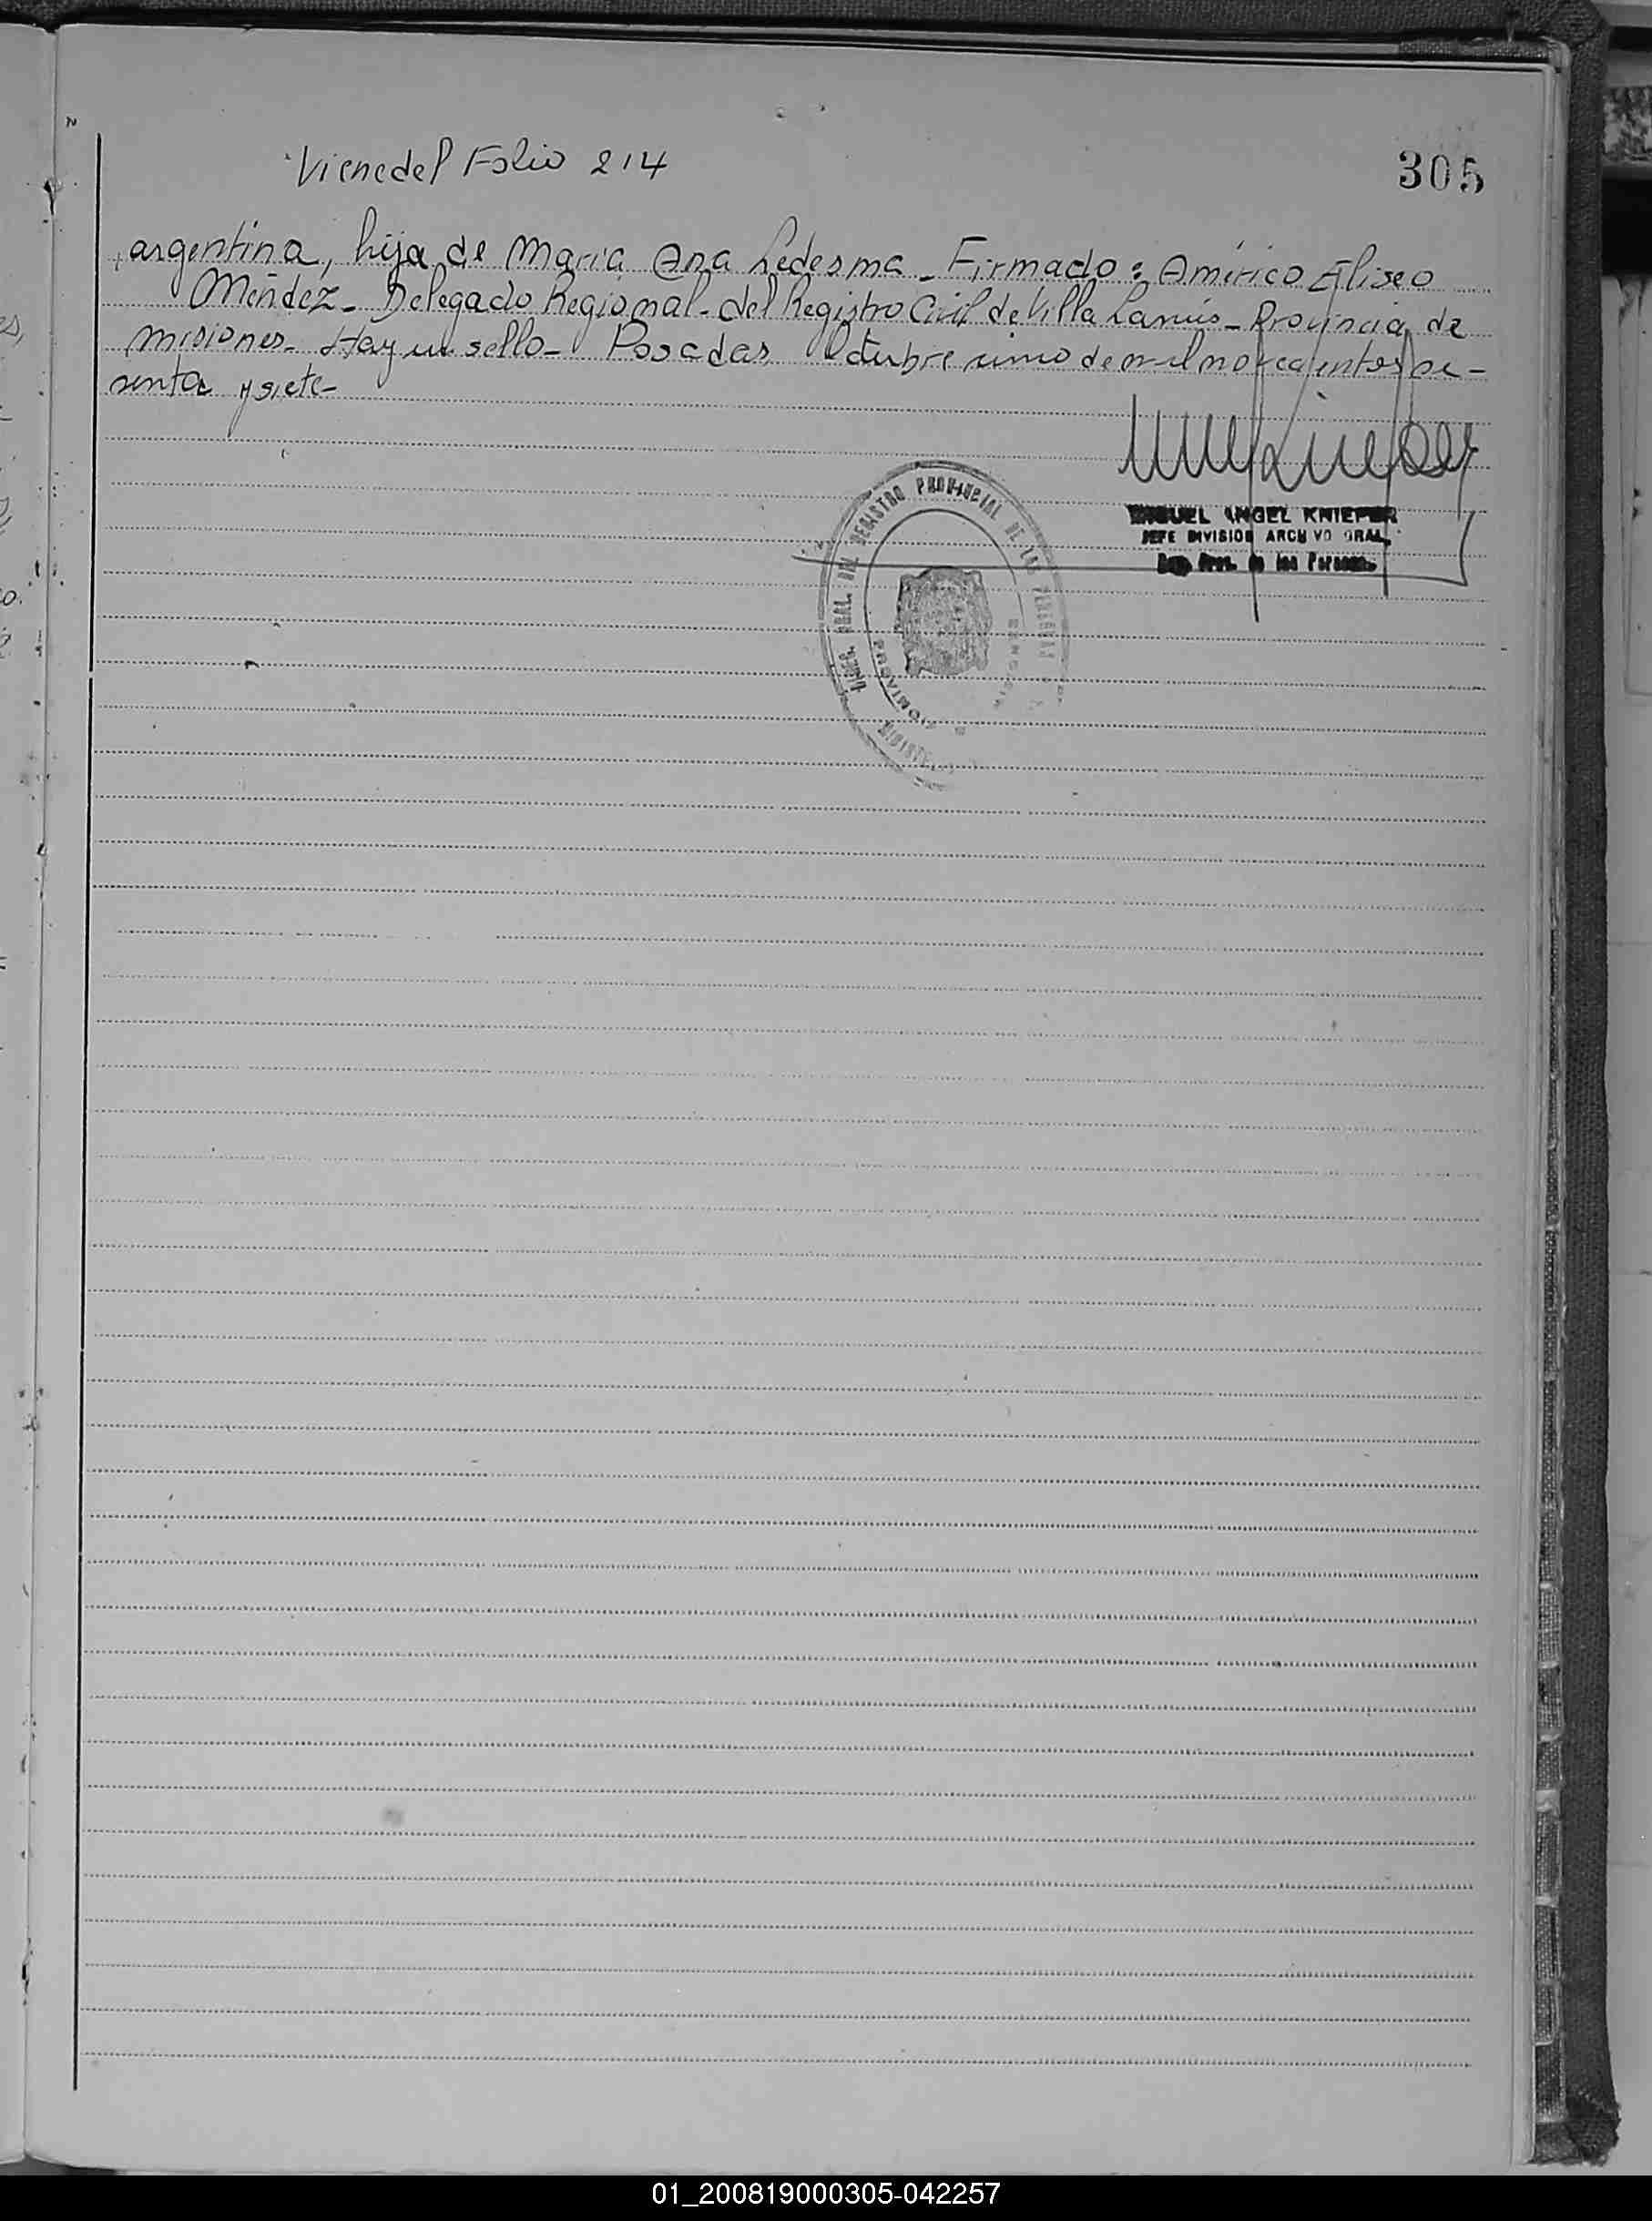 Viene del Folio 214
305
argentina, hija de María Ana Ledesma - Firmado: Américo Eliseo
Méndez - Delegado Regional - del Registro Civil de Villa Lanús - Provincia de
Misiones - Hay un sello - Posadas, Octubre cinco de mil novecientos se-
senta y siete -
MIGUEL ANGEL KNIEPER
JEFE DIVISION ARCHIVO GRAL.
Reg. Prov. de las Personas
DIREC. GRAL. DEL REGISTRO PROVINCIAL DE LAS PERSONAS
POSADAS
MISIONES
01_200819000305-042257